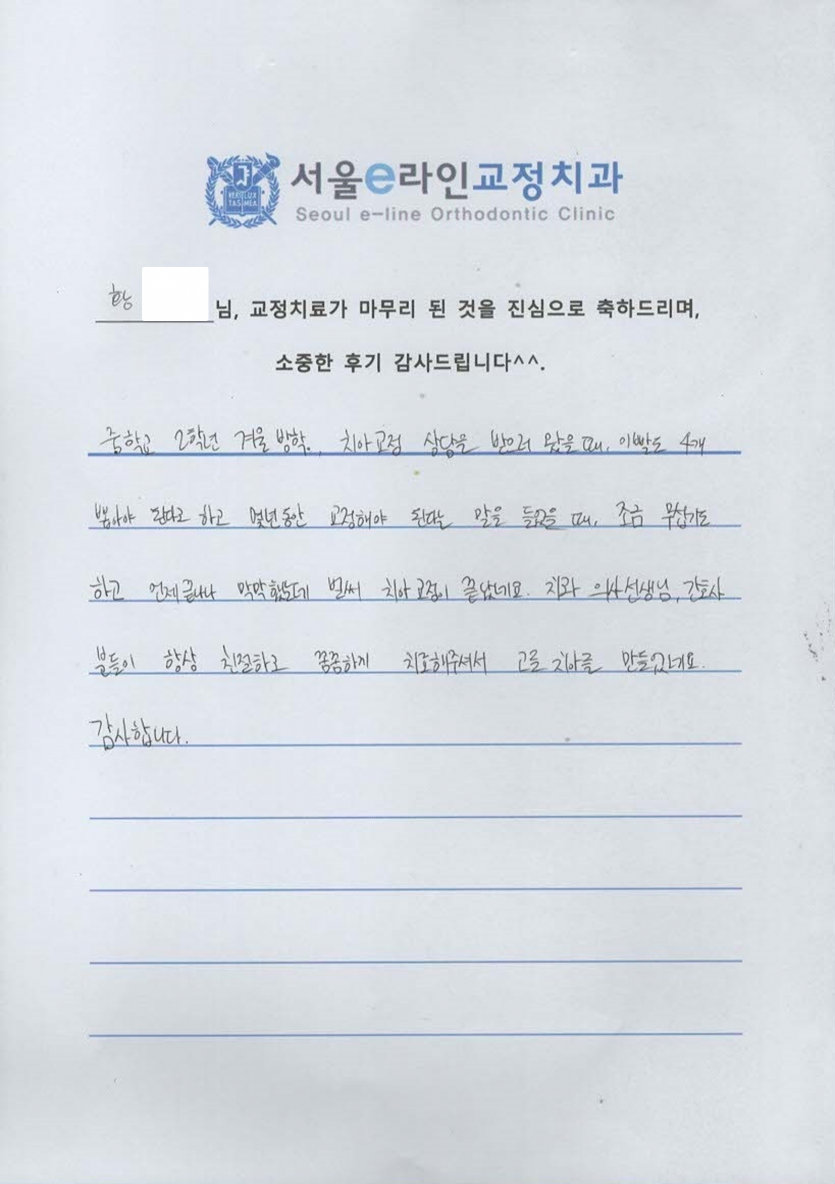 서울e라인교정치과
Seoul e-line Orthodontic Clinic
VERI LUX
TAS MEA
황 님, 교정치료가 마무리 된 것을 진심으로 축하드리며,
소중한 후기 감사드립니다^^.
중학교 2학년 겨울 방학, 치아교정 상담을 받으러 왔을 때, 이빨도 4개
뽑아야 된다고 하고 몇년동안 교정해야 된다는 말을 들었을 때, 조금 무섭기도
하고 언제끝나나 막막했는데 벌써 치아교정이 끝났네요. 치과 의사선생님, 간호사
분들이 항상 친절하고 꼼꼼하게 치료해주셔서 고른 치아를 만들었네요.
감사합니다.